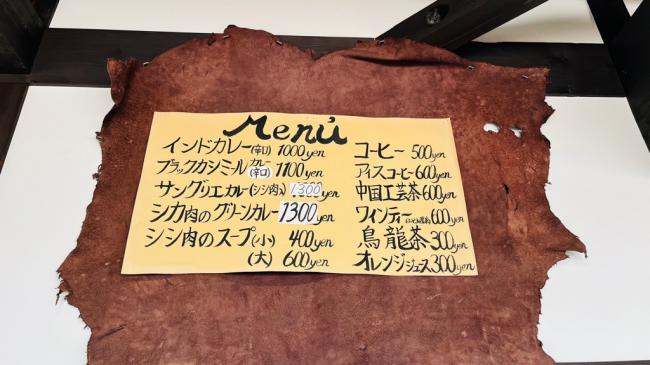 Menú
インドカレー(辛口) 1000yen
ブラックカシミールカレー(辛口) 1100yen
サングリエカレー(シシ肉入) 1300yen
シカ肉のグリーンカレー 1300yen
シシ肉のスープ(小) 400yen
(大) 600yen
コーヒー 500yen
アイスコーヒー 600yen
中国工芸茶 600yen
ワインティー 600yen
烏龍茶 300yen
オレンジジュース 300yen